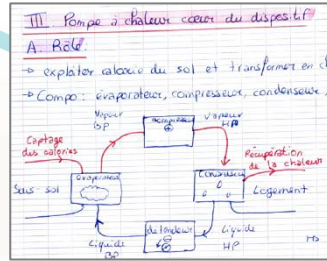 III. Pompe à chaleur cœur du dispositif
A. Rôle:
→ exploiter calorie du sol et transformer en
→ Compo: évaporateur, compresseur, condenseur,
Vapeur
BP
compresseur
Vapeur
HP
Captage
des calories
Récupération
de la chaleur
évaporateur
Condenseur
Sous-sol
Logement
détendeur
Liquide
BP
Liquide
HP